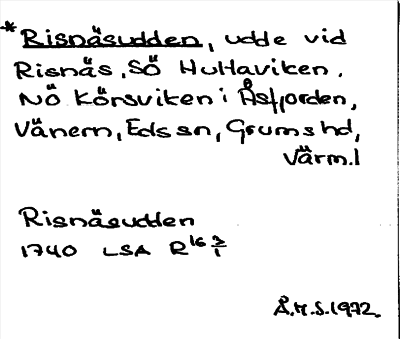 *Risnäsudden, udde vid
Risnäs, SÖ Hultaviken,
NÖ Körsviken i Åsfjorden,
Vänern, Eds sn, Grums hd,
Värm.l
Risnäsudden
1740 LSA R16 3/1
Å.H.S. 1972.